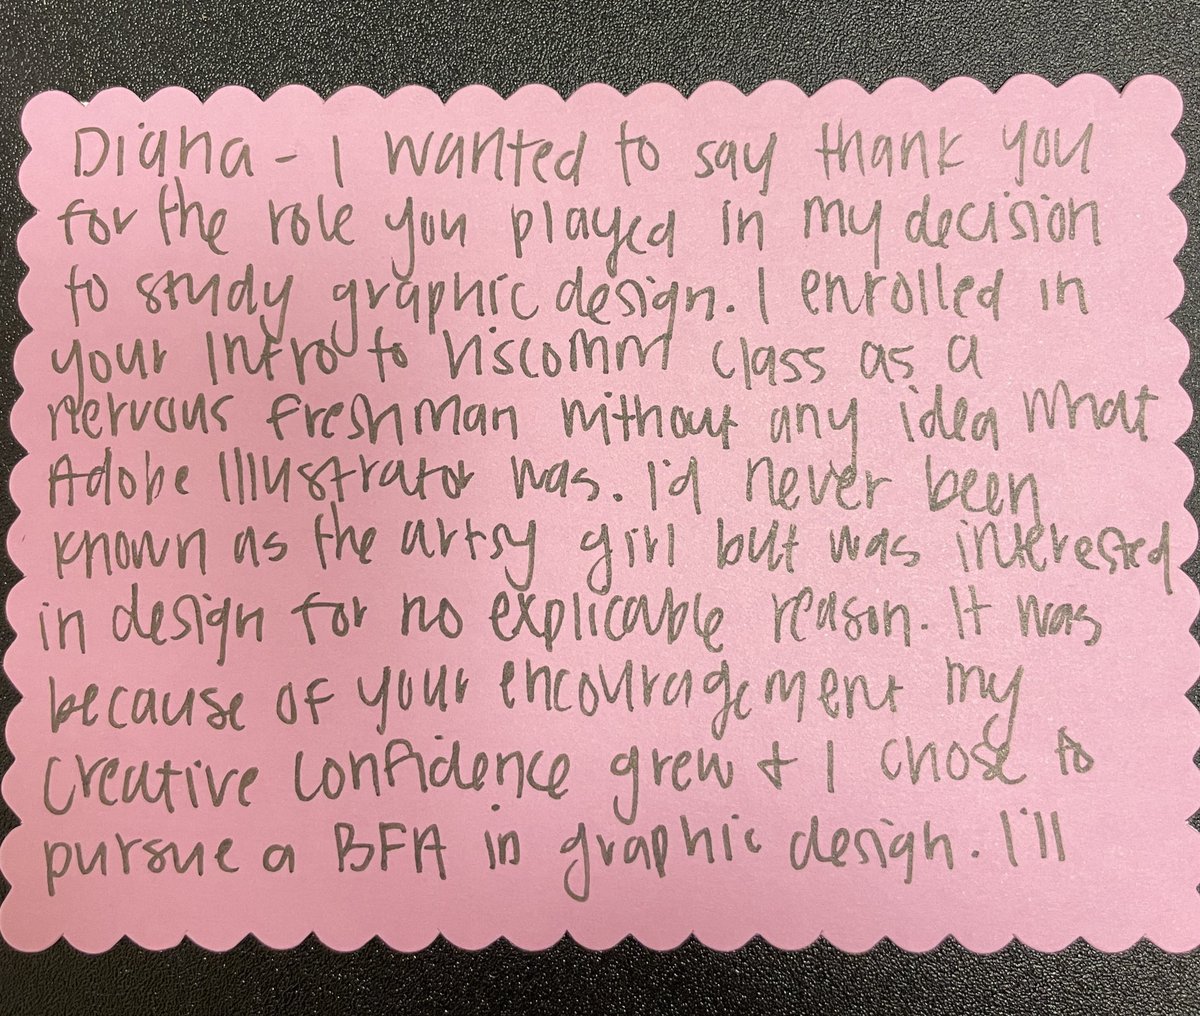 Diana - I wanted to say thank you
for the role you played in my decision
to study graphic design. I enrolled in
your Intro to Viscomm class as a
nervous freshman without any idea what
Adobe Illustrator was. I'd never been
known as the artsy girl but was interested
in design for no explicable reason. It was
because of your encouragement my
creative confidence grew + I chose to
pursue a BFA in graphic design. I'll